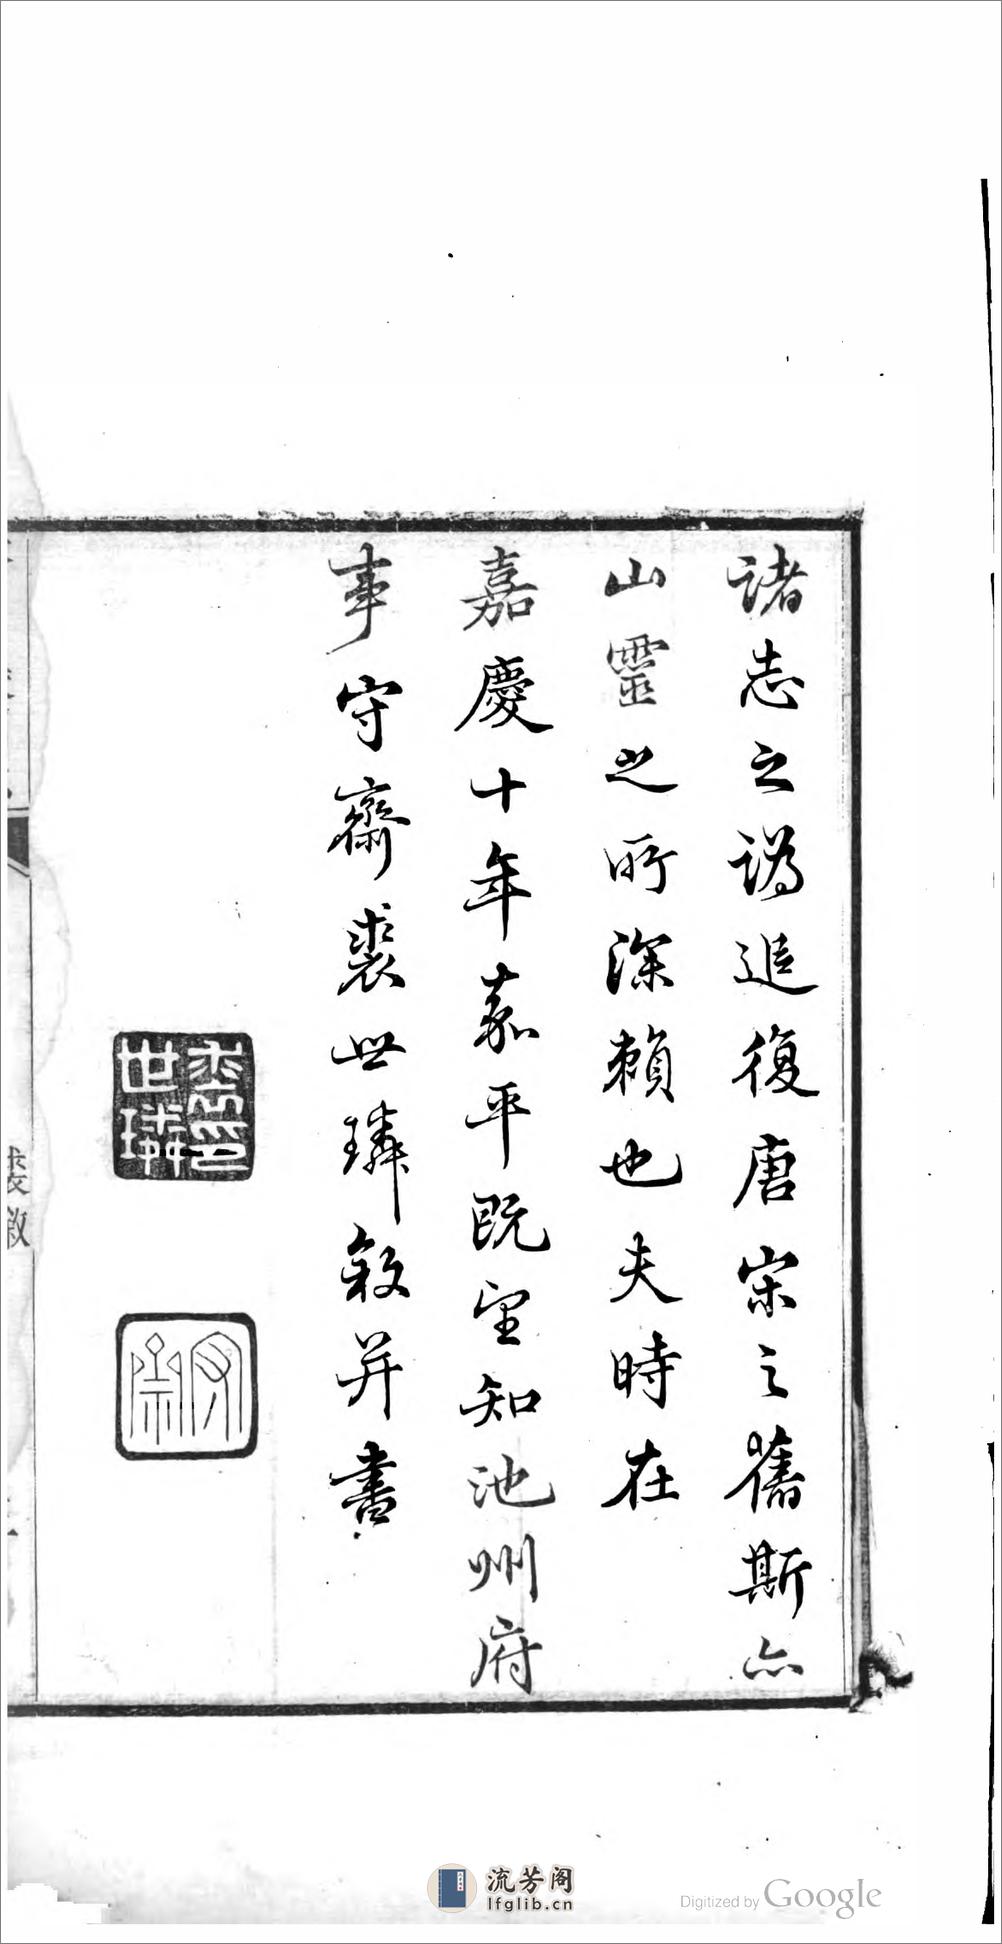 諸志之譌追復唐宋之舊斯亦
山靈之所深賴也夫時在
嘉慶十年嘉平既望知池州府
事守齋裘世璘敘并書
裘印世璘
守齋
裘敘
流芳阁
lfglib.cn
Digitized by Google